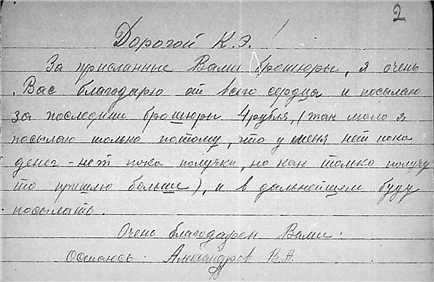 2
Дорогой К. Э.!
За присланные Вами брошюры, я очень
Вас благодарю от всего сердца и посылаю
за последнии брошюры 4 рубля, (так мало я
посылаю только потому, что у меня нет пока
денег - нет пока получки, но как только получу
то пришлю больше), и в дальнейшем буду
посылать.
Очень благодарен Вами.
Остаюсь: Александров В. А.